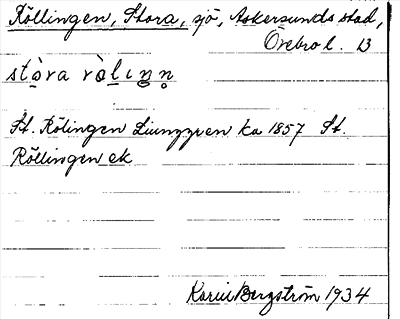 Röllingen, Stora, sjö, Askersunds stad,
Örebro l. B
stòra ròlıŋn̥
St. Rölingen Liunggren ka 1857 St.
Röllingen ek
Karin Bergström 1934